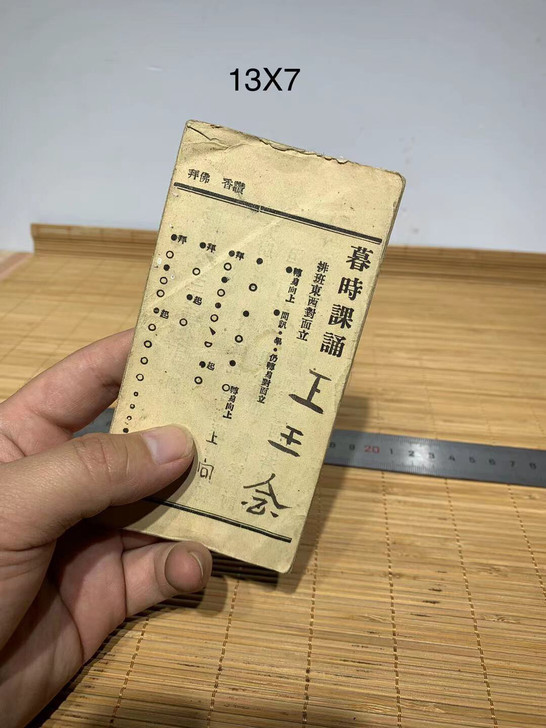 13X7
讚香 佛拜
暮時課誦
排班東西對面立
●轉身向上 問訊●畢●仍轉身對面立
● ○ ● ○ ●
●拜●○●○ ●起○ ○轉身向上
●拜○ ●起○
●拜●○●○ ●起○○○○○
王 会
上 向
20 1 2 3 4 5 6 7 8